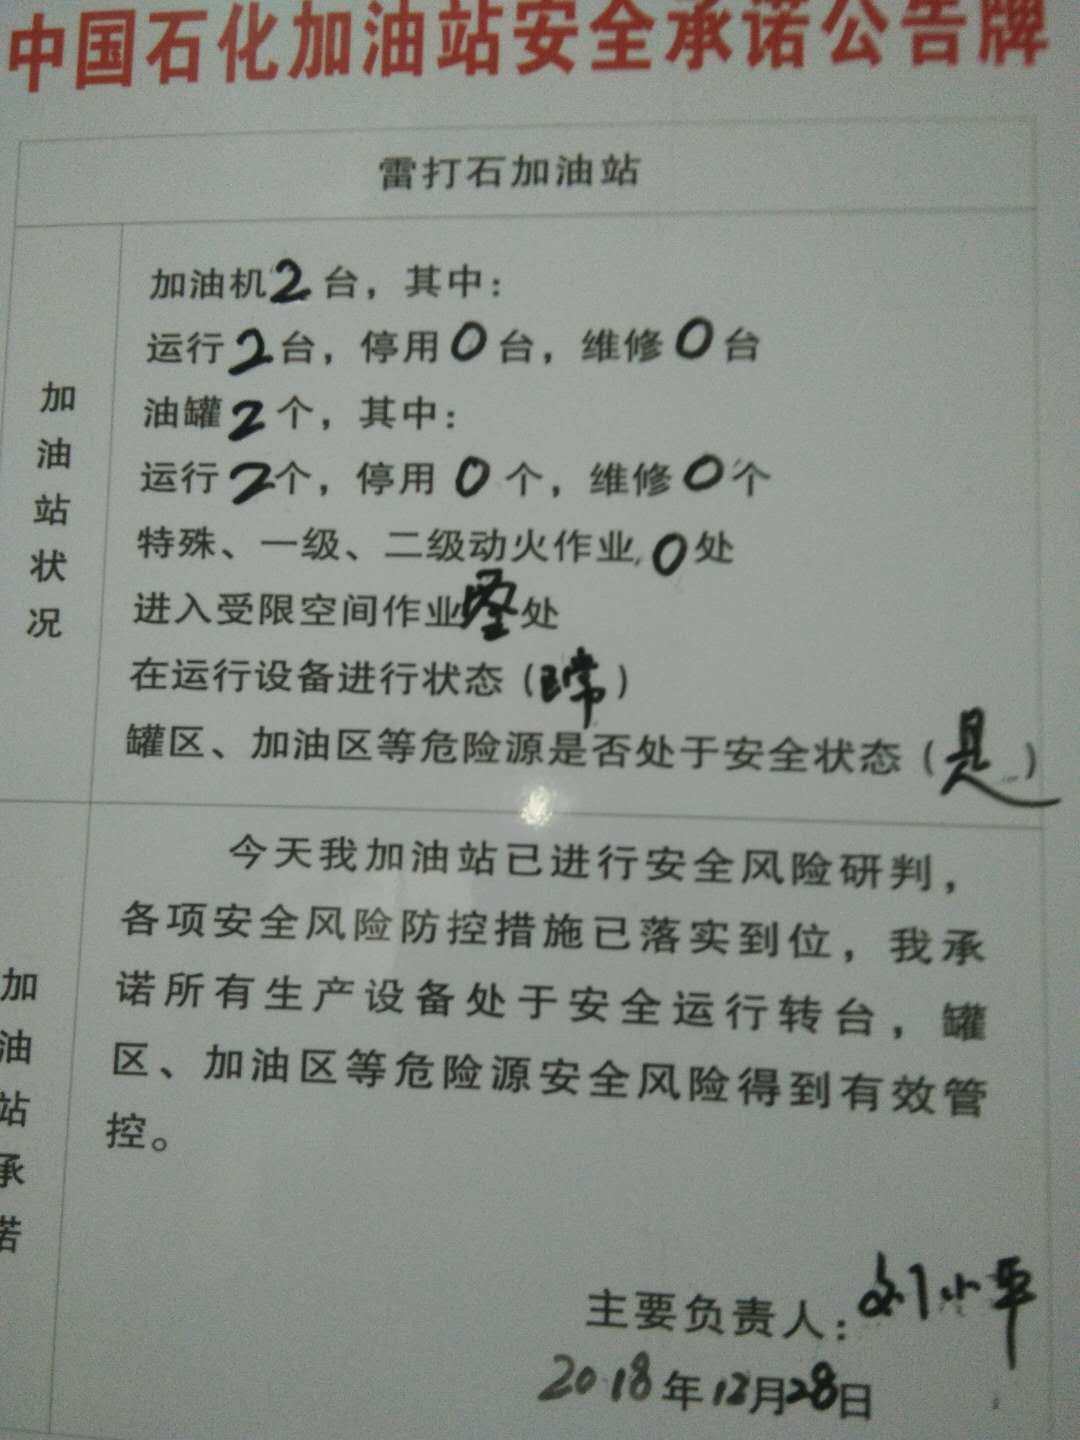 中国石化加油站安全承诺公告牌
雷打石加油站
加油站状况
加油机2台，其中：
运行2台，停用0台，维修0台
油罐2个，其中：
运行2个，停用0个，维修0个
特殊、一级、二级动火作业0处
进入受限空间作业处
在运行设备进行状态（正常）
罐区、加油区等危险源是否处于安全状态（是）
加油站承诺
今天我加油站已进行安全风险研判，
各项安全风险防控措施已落实到位，我承
诺所有生产设备处于安全运行转台，罐
区、加油区等危险源安全风险得到有效管
控。
主要负责人：刘小平
2018年12月28日